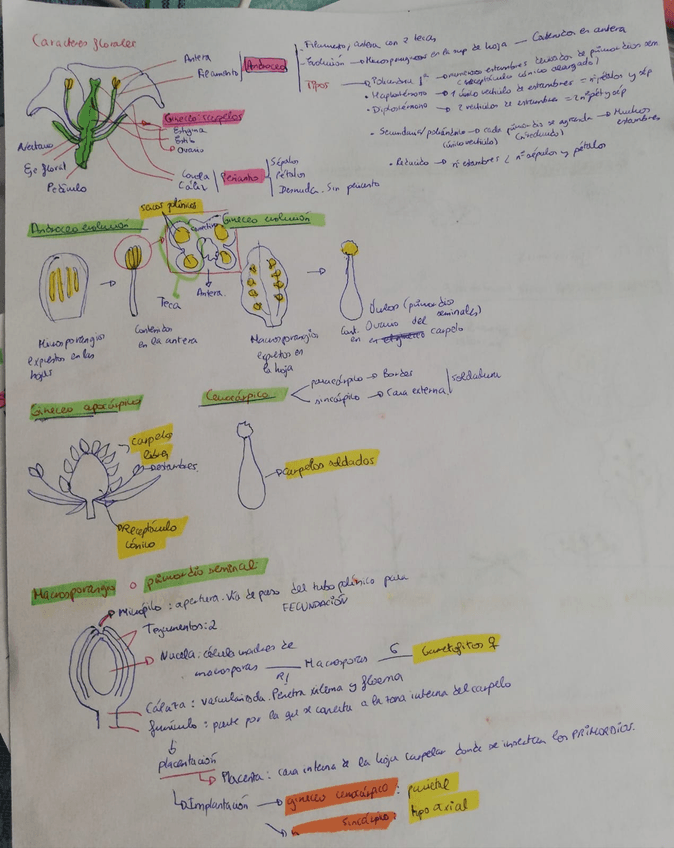 Caracteres florales
Antera
Filamento
Androceo
Filamento, antera con 2 tecas
Evolución → Microsporangios en la sup de hoja — Contenidos en antera
Tipos
Poliandria 1ª → numerosos estambres
(receptáculo cónico alargado)
Haplostémono → 1 único verticilo de estambres = nº pétalos y sép
Diplostémono → 2 verticilos de estambres = 2 nº pét y sép
Secundaria/poliandria → cada primordio se agranda → Muchos estambres
(único verticilo)
Reducido → nº estambres < nº sépalos y pétalos
Gineceo: carpelos
Estigma
Estilo
Ovario
Nectario
Eje floral
Pedúnculo
Corola
Cáliz
Perianto
Sépalos
Pétalos
Desnuda. Sin perianto
sacos polínicos
Androceo evolución
Gineceo evolución
Teca
Antera.
Microsporangios
expuestos en las
hojas
Contenidos
en la antera
Macrosporangios
expuestos en
la hoja
Óvulos (primordios
seminales)
Cont. Ovario del
en carpelo
Gineceo apocárpico
Cenocárpico
paracárpico → Bordes
sincárpico → Cara externa
soldadura
carpelos
libres
estambres
Receptáculo
cónico
carpelos soldados
Macrosporangio o primordio seminal:
Micrópilo: apertura. Vía de paso del tubo polínico para
FECUNDACIÓN
Tegumentos: 2
Nucela: célula madres de
macrosporas — R! Macrosporas — G Gametofitos ♀
Cálaza: vascularizada. Penetra xilema y floema
funículo: parte por la que se conecta a la zona interna del carpelo
placentación
Placenta: cara interna de la hoja carpelar donde se insertan los PRIMORDIOS.
Implantación → gineceo cenocárpico: parietal
sincárpico: tipo axial